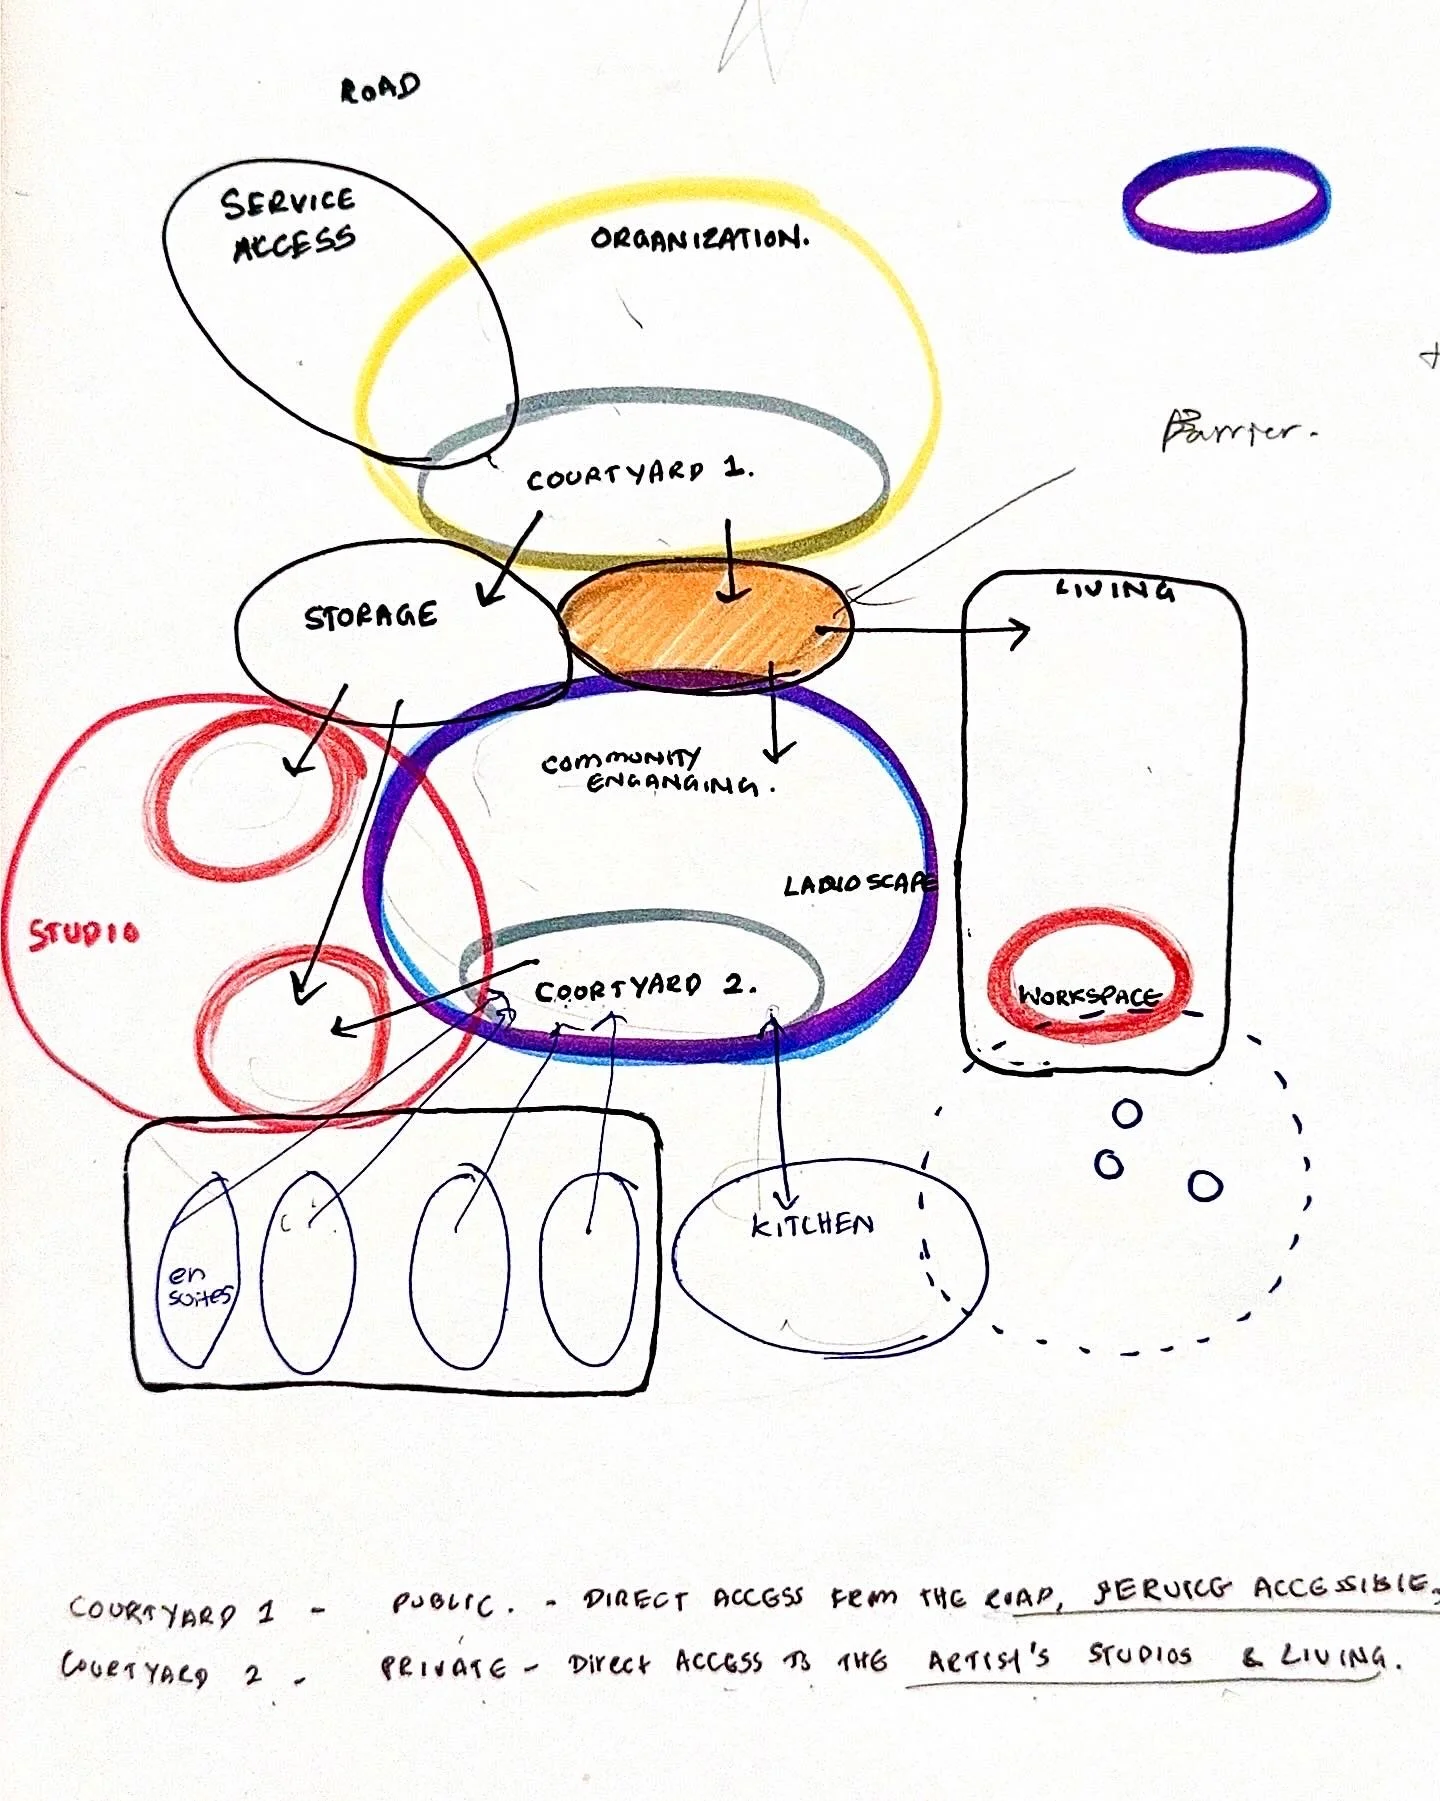 ROAD
SERVICE
ACCESS
ORGANIZATION.
Barrier.
COURTYARD 1.
STORAGE
LIVING
COMMUNITY
ENGANGING.
LANDSCAPE
STUDIO
COORTYARD 2.
WORKSPACE
KITCHEN
en
suites
COURTYARD 1 - PUBLIC. - DIRECT ACCESS FROM THE ROAD, SERVICE ACCESSIBLE,
COURTYARD 2 - PRIVATE - DIrect ACCESS TO THE ARTIST'S STUDIOS & LIVING.